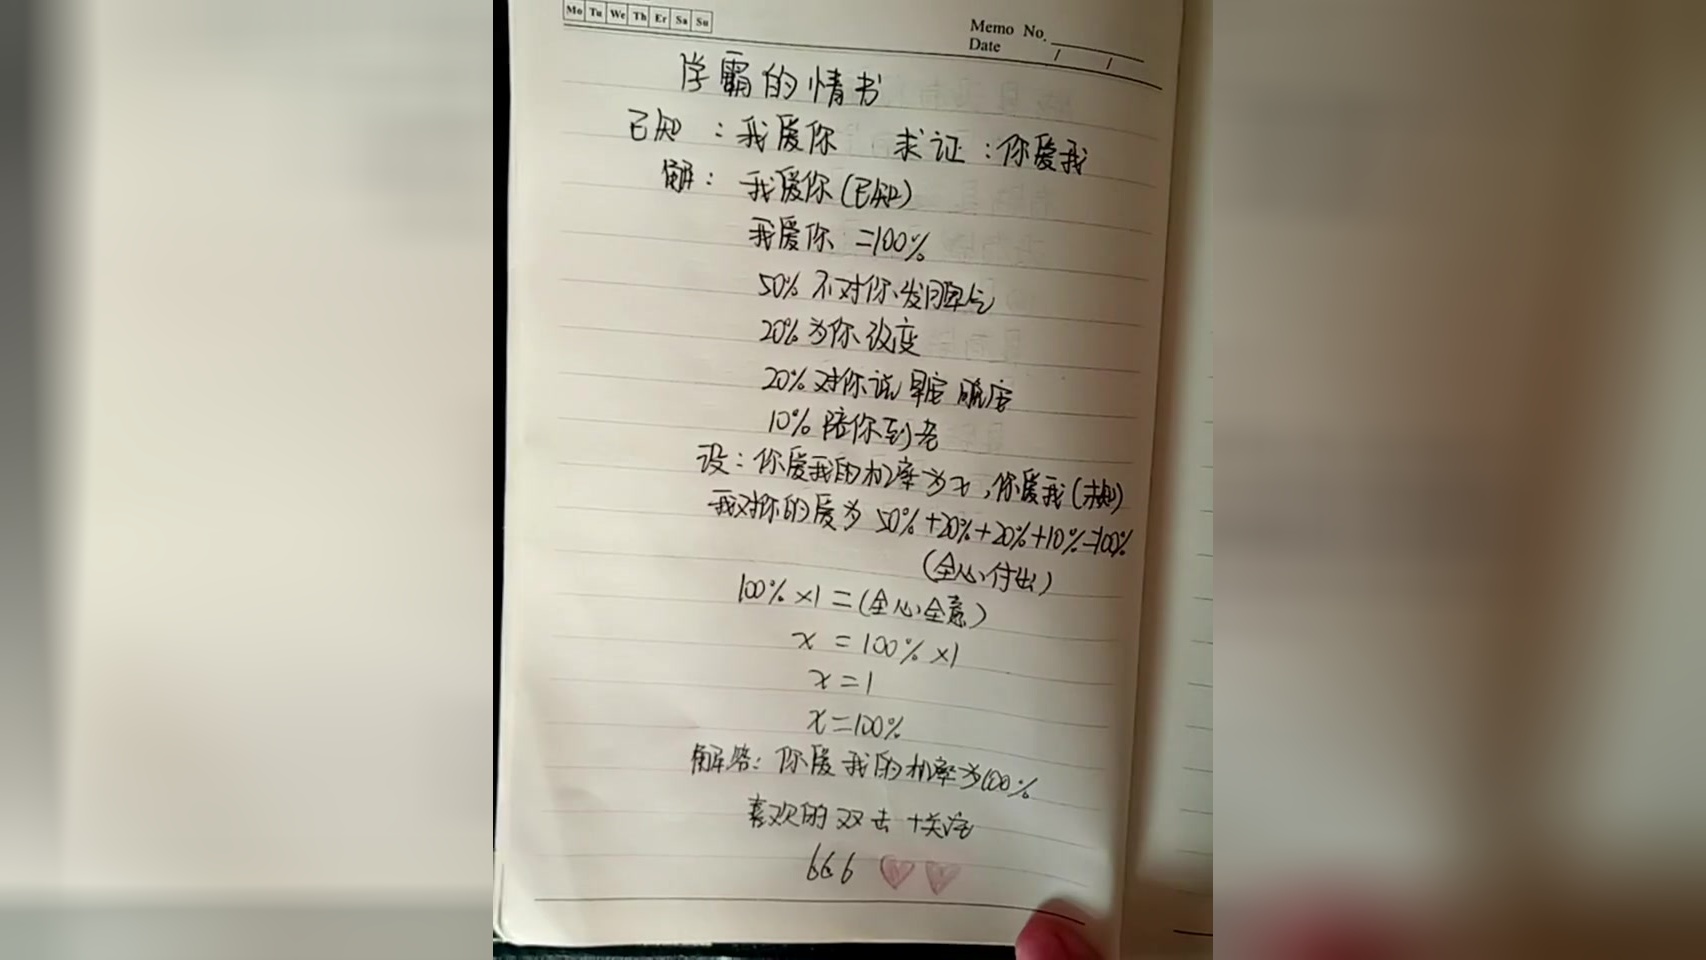 Mo Tu We Th Fr Sa Su
Memo No.
Date / /
学霸的情书
已知：我爱你 求证：你爱我
解：我爱你(已知)
我爱你=100%
50% 不对你发脾气
20% 为你改变
20% 对你说早安 晚安
10% 陪你到老
设：你爱我的机率为x，你爱我(未知)
我对你的爱为 50%+20%+20%+10%=100%
(全心付出)
100%×1=(全心全意)
x=100%×1
x=1
x=100%
解答：你爱我的机率为100%
喜欢的双击+关注
666